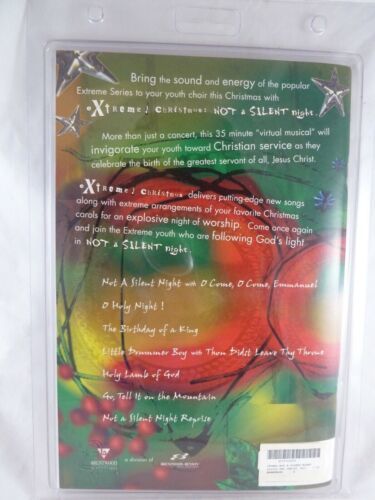 Bring the sound and energy of the popular
Extreme Series to your youth choir this Christmas with
eXtreme! Christmas: NOT A SILENT Night.
More than just a concert, this 35 minute "virtual musical" will
invigorate your youth toward Christian service as they
celebrate the birth of the greatest servant of all, Jesus Christ.
eXtreme! Christmas delivers putting-edge new songs
along with extreme arrangements of your favorite Christmas
carols for an explosive night of worship. Come once again
and join the Extreme youth who are following God's light
in NOT A SILENT Night.
Not A Silent Night with O Come, O Come, Emmanuel
O Holy Night!
The Birthday of a King
Little Drummer Boy with Thou Didst Leave Thy Throne
Holy Lamb of God
Go, Tell It on the Mountain
Not a Silent Night Reprise
BRENTWOOD
a division of
BRENTWOOD-BENSON